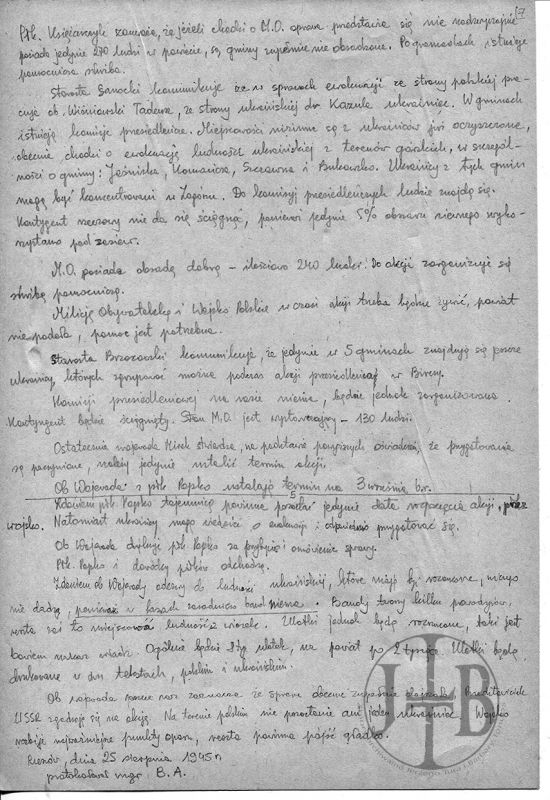 7
Płk. Księżarczyk zaznacza, że jeżeli chodzi o M.O. sprawa przedstawia się nie nadzwyczajnie
posiada jedynie 270 ludzi w powiecie, są gminy zupełnie nie obsadzone. Po gromadach istnieje
pomocnicza służba.
Starosta Sanocki komunikuje że w sprawach ewakuacji ze strony polskiej pra-
cuje ob. Wiśniowski Tadeusz, ze strony ukraińskiej dr Kazuła ukrainiec. W gminach
istnieją komisje przesiedleńcze. Miejscowości nizinne są z ukraińców już oczyszczone,
obecnie chodzi o ewakuację ludności ukraińskiej z terenów górskich, w szczegól-
ności o gminy: Jaśliska, Komańcza, Szczawne i Bukowsko. Ukraińcy z tych gmin
mogą być koncentrowani w Zagórzu. Do komisyj przesiedleńczych ludzie znajdą się.
Kontyngent rzeczowy nie da się ściągnąć, ponieważ jedynie 5% obszaru ziemnego wyko-
rzystano pod zasiew.
M.O. posiada obsadę dobrą – ilościowo 240 ludzi. Do akcji zorganizuje się
służbę pomocniczą.
Milicję Obywatelską i Wojsko Polskie w czasie akcji trzeba będzie żywić, powiat
nie podoła, pomoc jest potrzebna.
Starosta Brzozowski komunikuje, że jedynie w 5 gminach znajdują się jeszcze
Ukraińcy, których zgrupować można podczas akcji przesiedleńczej w Birczy.
Komisji przesiedleńczej na razie niema, będzie jednak zorganizowana.
Kontyngent będzie ściągnięty. Stan M.O. jest wystarczający – 130 ludzi.
Ostatecznie wojewoda Mirek stwierdza, na podstawie powyższych oświadczeń, że przygotowania
są poczynione, należy jedynie ustalić termin akcji.
Ob Wojewoda i płk Popko ustalają termin na 3 września br.
5
Zdaniem płk. Popko tajemnicą powinna pozostać jedynie data rozpoczęcia akcji, przez
wojsko. Natomiast ukraińcy mogą wiedzieć o ewakuacji i odpowiednio przygotować się.
Ob Wojewoda dziękuje płk. Popko za przybycie i omówienie sprawy.
Płk. Popko i dowódcy pułków odchodzą.
Zdaniem ob Wojewody odezwy do ludności ukraińskiej, które mają być rozrzucone, niczego
nie dadzą, ponieważ w lasach zasadniczo band niema. Bandy tworzy kilku prowodyrów,
reszta zaś to miejscowość ludność z wiosek. Ulotki jednak będą rozrzucane, taki jest
bowiem nakaz władz. Ogólnie będzie 8 tys ulotek, na powiat po 2 tysiące. Ulotki będą
drukowane w dwu tekstach, polskim i ukraińskim.
Ob wojewoda jeszcze raz zaznacza że sprawa obecnie zupełnie dojrzała. Przedstawiciele
USSR zgadzają się na akcję. Na terenie polskim nie pozostanie ani jeden ukrainiec. Wojsko
rozbije najważniejsze punkty oporu, reszta powinna pójść gładko.
Rzeszów, dnia 25 sierpnia 1945 r.
protokołował mgr. B. A.
JTB